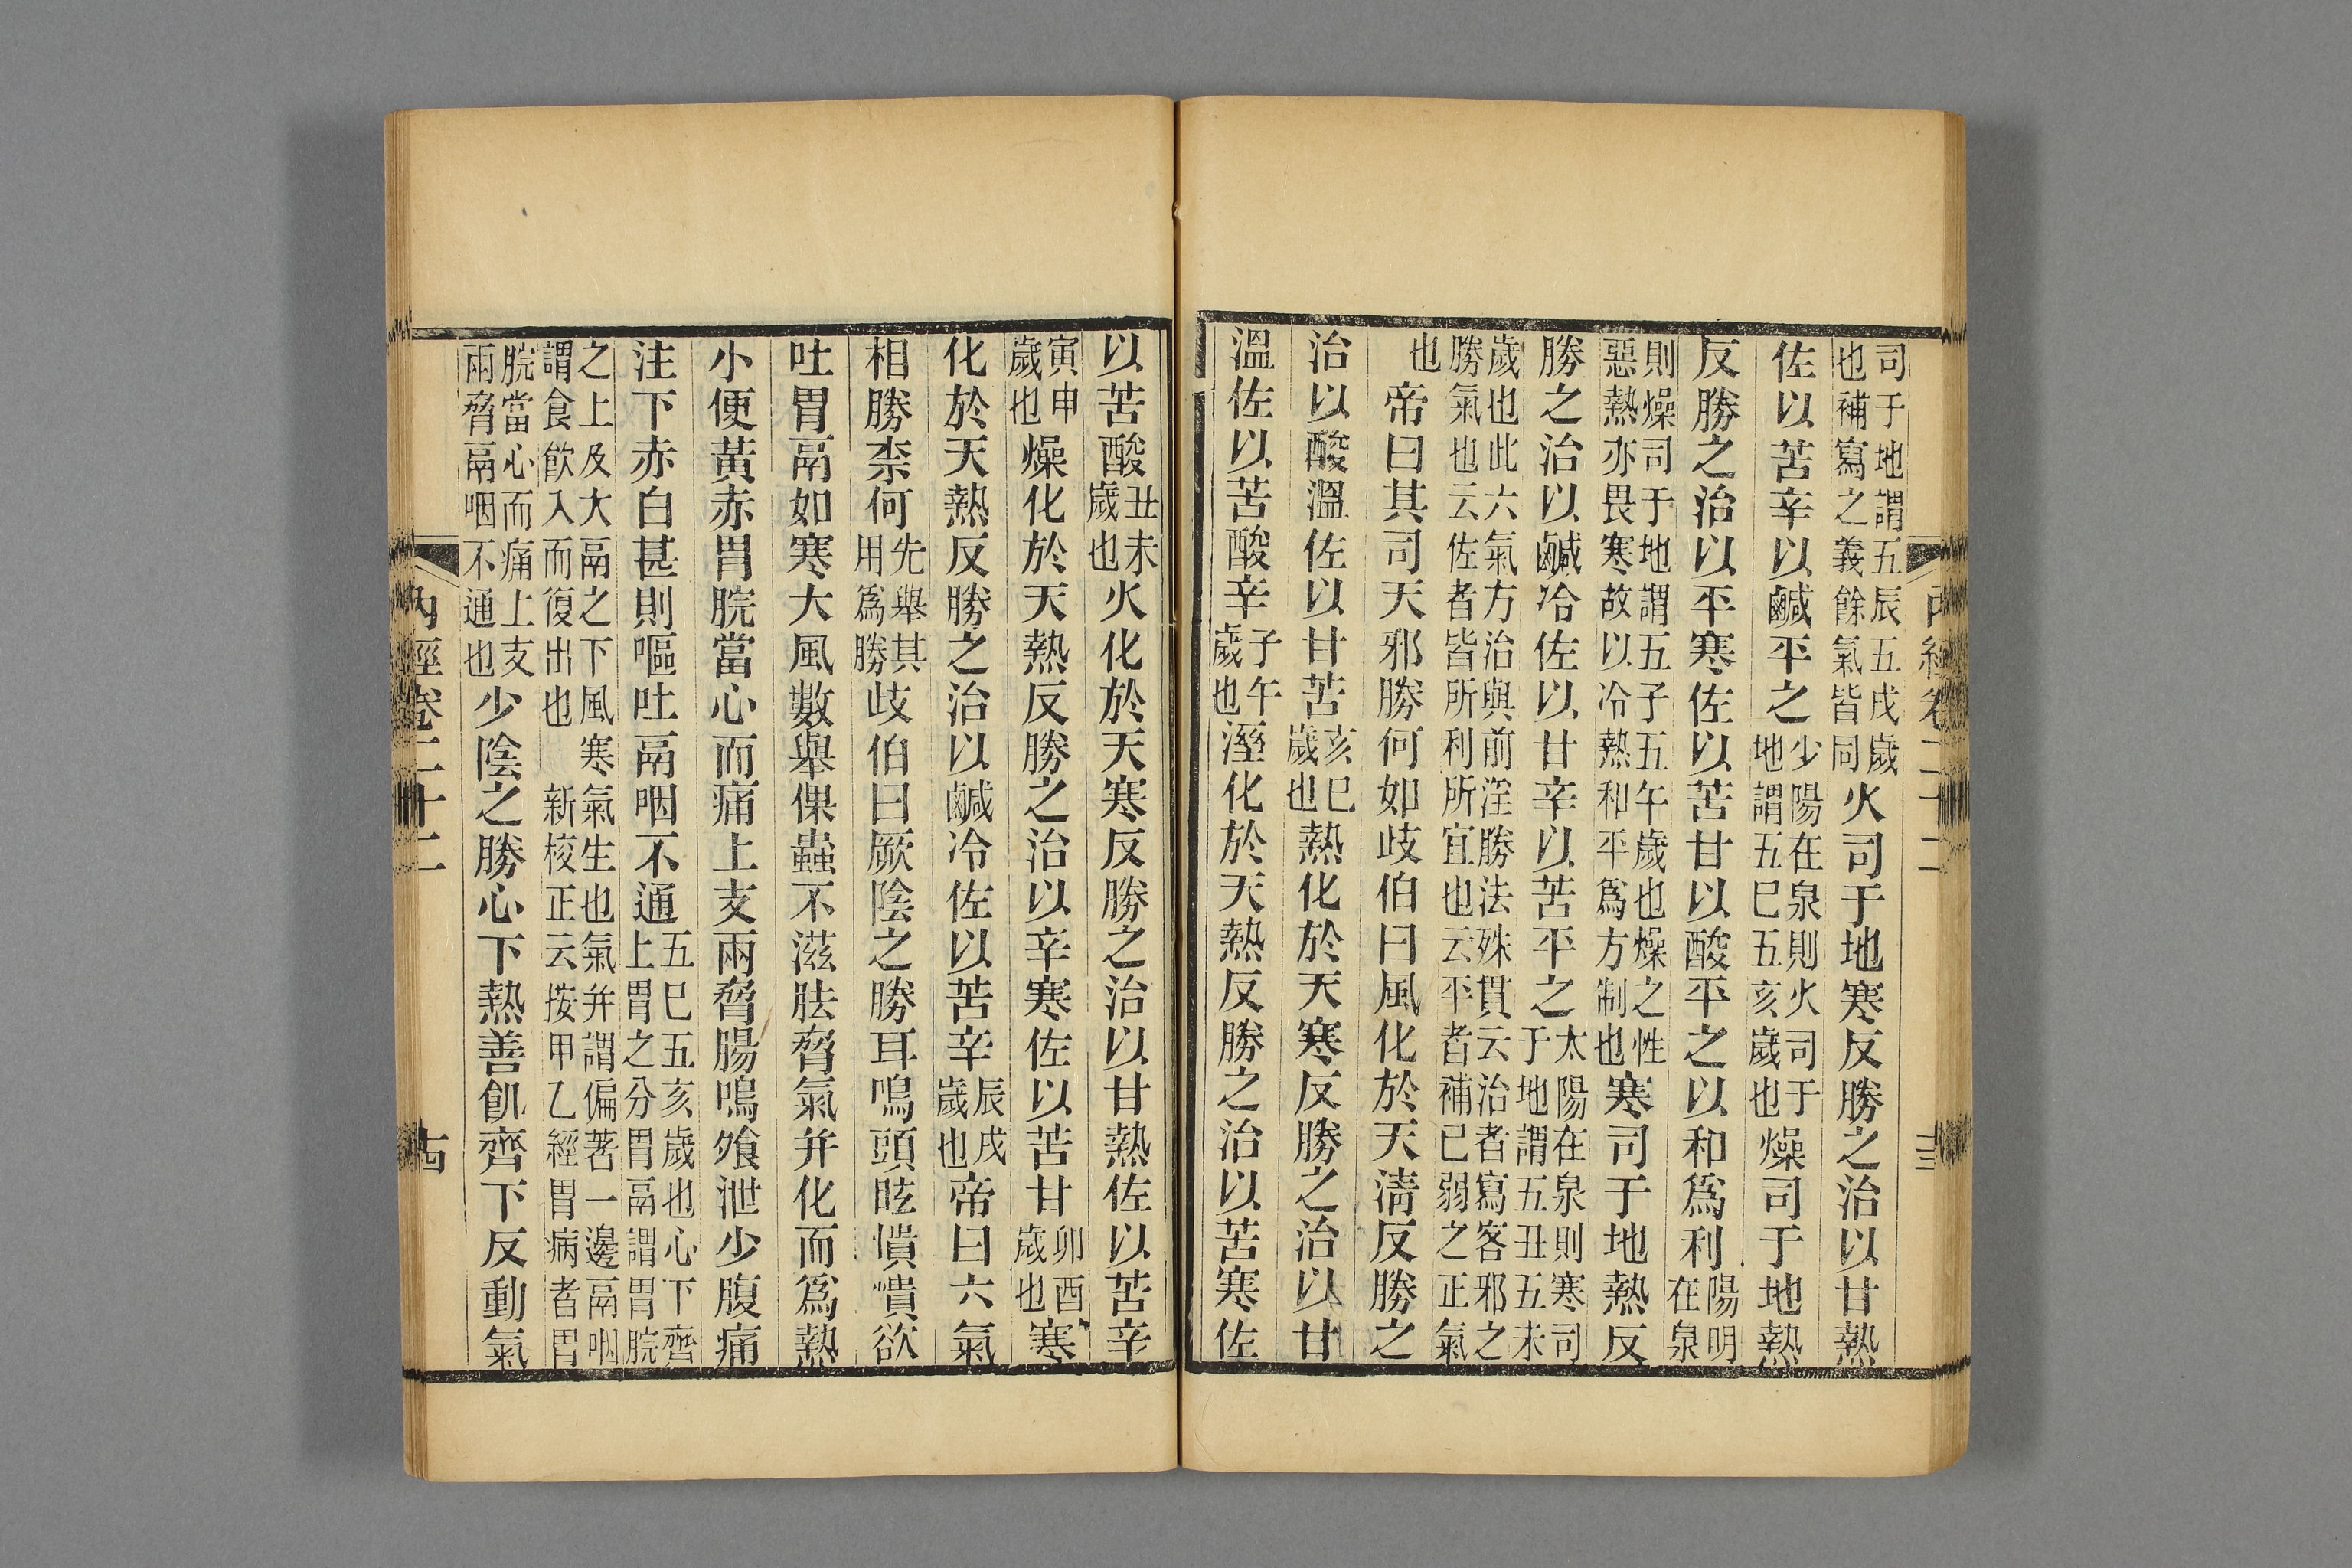 司于地謂五辰五戌歲也補寫之義餘氣皆同火司于地寒反勝之治以甘熱
佐以苦辛以鹹平之少陽在泉則火司于地謂五巳五亥歲也燥司于地熱
反勝之治以平寒佐以苦甘以酸平之以和爲利陽明在泉
則燥司于地謂五子五午歲也燥之性惡熱亦畏寒故以冷熱和平爲方制也寒司于地熱反
勝之治以鹹冷佐以甘辛以苦平之太陽在泉則寒司于地謂五丑五未
歲也此六氣方治與前淫勝法殊貫云治者寫客邪之勝氣也云佐者皆所利所宜也云平者補已弱之正氣
也帝曰其司天邪勝何如歧伯曰風化於天淸反勝之
治以酸溫佐以甘苦亥巳歲也熱化於天寒反勝之治以甘
溫佐以苦酸辛子午歲也溼化於天熱反勝之治以苦寒佐
以苦酸丑未歲也火化於天寒反勝之治以甘熱佐以苦辛
寅申歲也燥化於天熱反勝之治以辛寒佐以苦甘卯酉歲也寒
化於天熱反勝之治以鹹冷佐以苦辛辰戌歲也帝曰六氣
相勝柰何先舉其用爲勝歧伯曰厥陰之勝耳鳴頭眩憒憒欲
吐胃鬲如寒大風數舉倮蟲不滋胠脅氣并化而爲熱
小便黃赤胃脘當心而痛上支兩脅腸鳴飱泄少腹痛
注下赤白甚則嘔吐鬲咽不通五巳五亥歲也心下齊上胃之分胃鬲謂胃脘
之上及大鬲之下風寒氣生也氣并謂偏著一邊鬲咽謂食飮入而復出也新校正云按甲乙經胃病者胃
脘當心而痛上支兩脅鬲咽不通也少陰之勝心下熱善飢齊下反動氣
內經卷二十二
十四